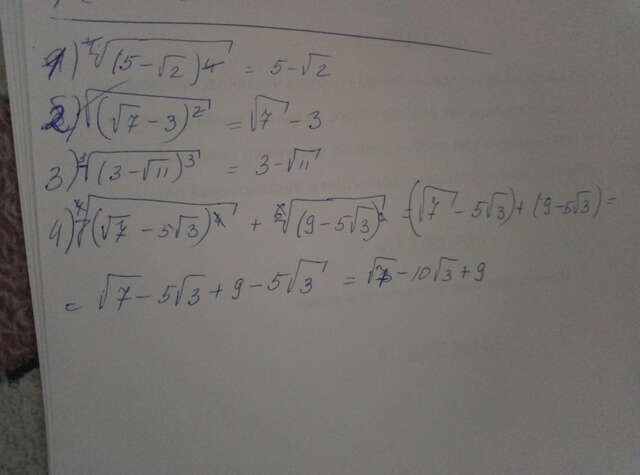 1) ⁴√(5-√2)⁴ = 5-√2
2) √(√7-3)² = √7-3
3) ³√(3-√11)³ = 3-√11
4) ⁴√(√7-5√3)⁴ + √(9-5√3) = (√7-5√3)+(9-5√3)=
= √7-5√3+9-5√3 = √7-10√3+9